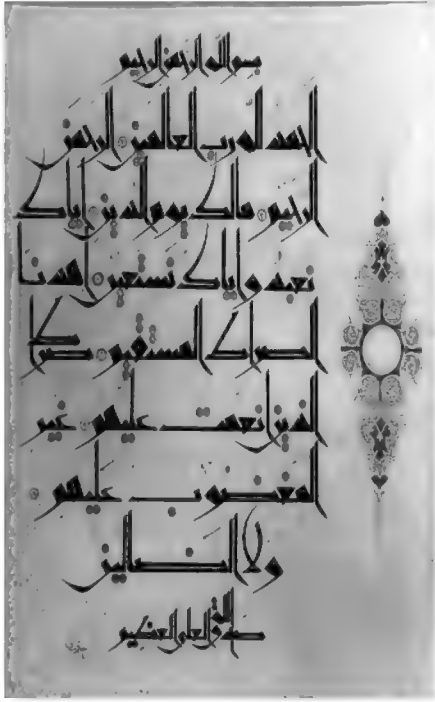 بسم الله الرحمن الرحيم
الحمد لله رب العالمين الرحمن
الرحيم مالك يوم الدين إياك
نعبد وإياك نستعين إهدنا
الصراط المستقيم صراط
الذين أنعمت عليهم غير
المغضوب عليهم
ولا الضالين
صدق الله العلي العظيم